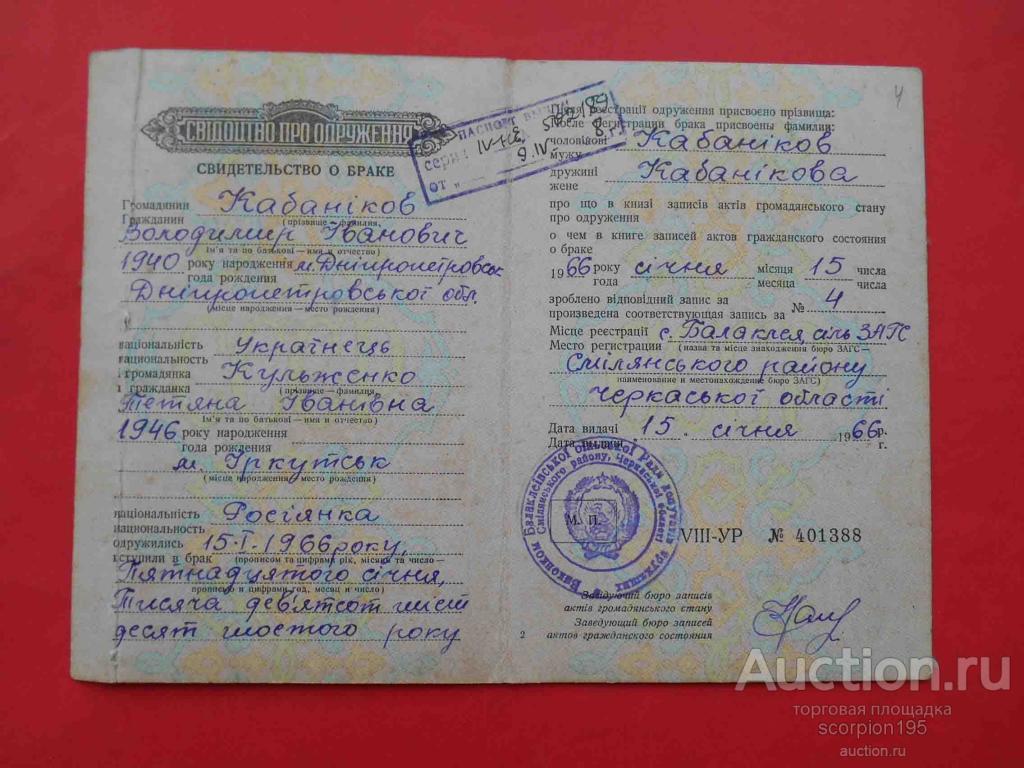 СВІДОЦТВО ПРО ОДРУЖЕННЯ
СВИДЕТЕЛЬСТВО О БРАКЕ
Громадянин Кабаніков
Гражданин
(прізвище – фамилия,
Володимир Іванович
ім'я та по батькові – имя и отчество)
1940 року народження м. Дніпропетровськ
года рождения
Дніпропетровської обл.
(Місце народження – место рождения)
національність Українець
национальность
і громадянка Кульженко
и гражданка
(прізвище – фамилия,
Тетяна Іванівна
ім'я та по батькові – имя и отчество)
1946 року народження
года рождения
м. Іркутськ
(місце народження – место рождения)
національність Росіянка
национальность
одружились 15-I-1966 року,
вступили в брак (прописом та цифрами рік, місяць та число –
Пятнадцятого січня,
прописью и цифрами год, месяц и число)
Тисяча дев'ятсот шіст
десят шостого року
ПАСПОРТ
серия IV-
от 9 IV
Після реєстрації одруження присвоєно прізвища:
После регистрации брака присвоены фамилии:
чоловікові Кабаніков
мужу
дружині Кабанікова
жене
про що в книзі записів актів громадянського стану
про одруження
о чем в книге записей актов гражданского состояния
о браке
1966 року січня місяця 15 числа
года месяца числа
зроблено відповідний запис за № 4
произведена соответствующая запись за
Місце реєстрації с. Балаклея, сіль ЗАГС
Место регистрации (назва та місце знаходження бюро ЗАГС–
Смілянського району
наименование и местонахождение бюро ЗАГС)
Черкаської області
Дата видачі 15. січня 1966 р.
Дата выдачи г.
Виконком Балаклеївської сільської Ради депутатів трудящих
Смілянського району, Черкаської області
М. П.
VIII-УР № 401388
Завідуючий бюро записів
актів громадянського стану
Заведующий бюро записей
актов гражданского состояния
2
4
Auction.ru
торговая площадка
scorpion195
auction.ru